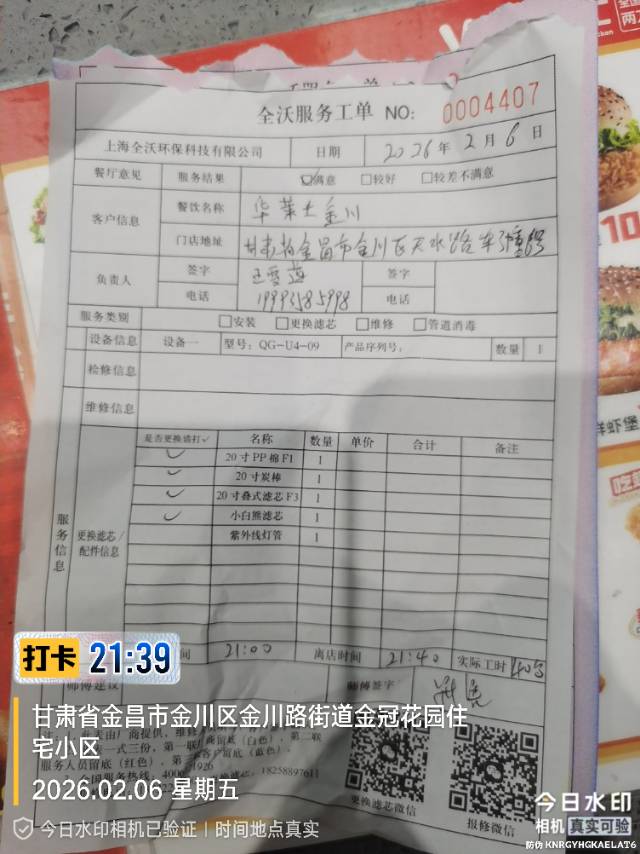 全沃服务工单 NO: 0004407
上海全沃环保科技有限公司 日期 2026年2月6日
餐厅意见 服务结果 ☑满意 □较好 □较差不满意
客户信息 餐饮名称 华莱士金川
门店地址 甘肃省金昌市金川区天水路
负责人 签字 签字
电话 19993585998 电话
服务类别 □安装 □更换滤芯 □维修 □管道消毒
设备信息 设备一 型号: QG-U4-09 产品序列号: 数量 1
检修信息
维修信息
服务信息 更换滤芯/配件信息
是否更换请打✓ 名称 数量 单价 合计 备注
✓ 20寸PP棉F1 1
✓ 20寸炭棒 1
✓ 20寸叠式滤芯F3 1
✓ 小白熊滤芯 1
紫外线灯管 1
21:00 离店时间 21:40 实际工时 40分
师傅建议 师傅签字
服务人员留底(红色)、第三联客户留底(蓝色)。
更换滤芯微信 报修微信
打卡 21:39
甘肃省金昌市金川区金川路街道金冠花园住
宅小区
2026.02.06 星期五
今日水印相机已验证 | 时间地点真实
今日水印
相机 真实可验
防伪 KNRGYHGKAELAT6